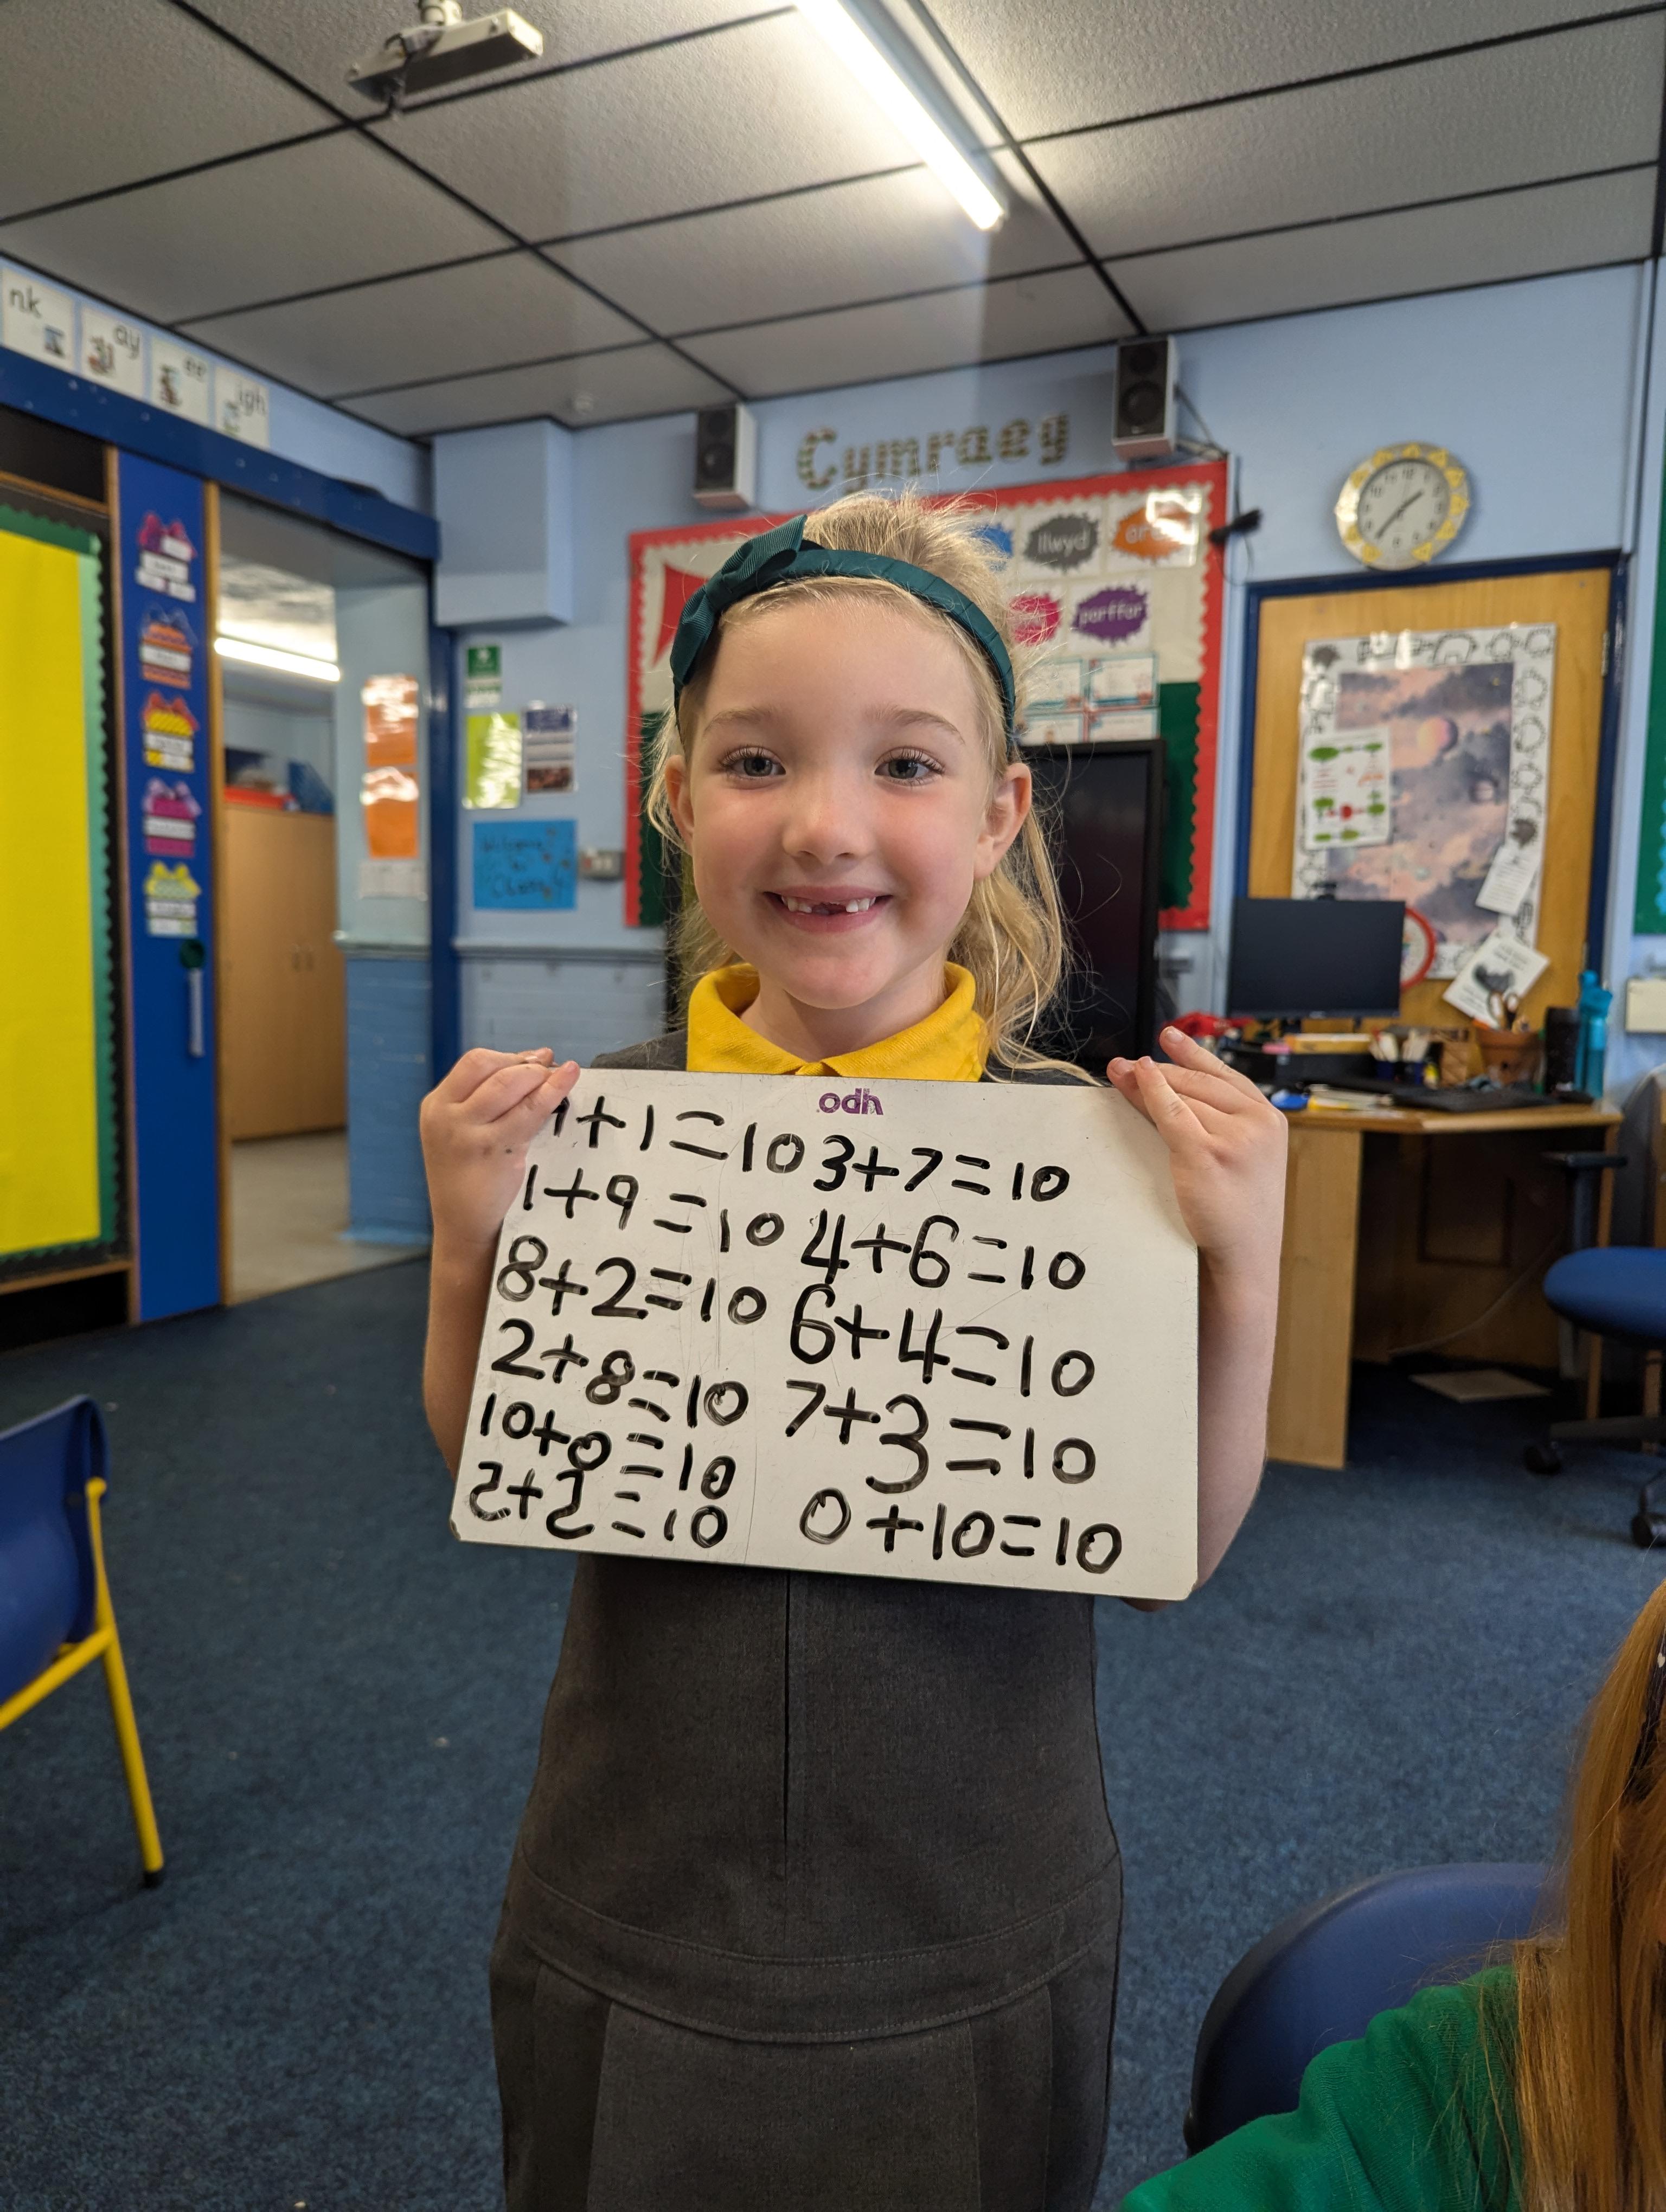 nk
ay
ee
igh
Cymraeg
llwyd
porffor
Welcome
to
odh
9+1=10 3+7=10
1+9=10 4+6=10
8+2=10 6+4=10
2+8=10 7+3=10
10+0=10 0+10=10
5+5=10